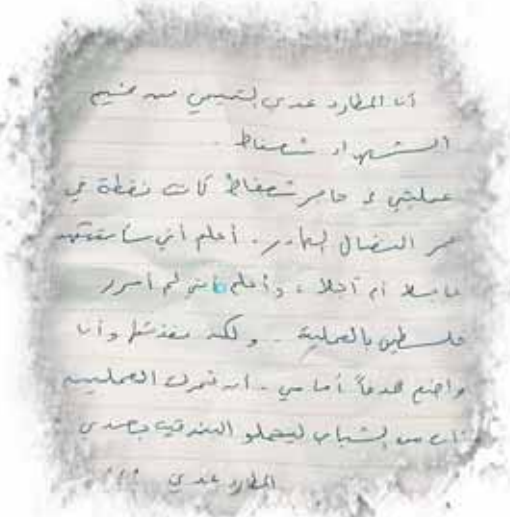 أنا المطارد عدي التميمي من مخيم
الشهداء شعفاط .
عمليتي ع حاجز شعفاط كانت نقطة في
بحر النضال الهادر . أعلم أني سأستشهد
عاجلا أم آجلا ، وأعلم أنني لم أحرر
فلسطين بالعملية .. ولكن نفذتها وأنا
واضع هدفاً أمامي . أن تحرك العملية
مئات من الشباب ليحملو البندقية بعدي .
المطارد عدي !!!